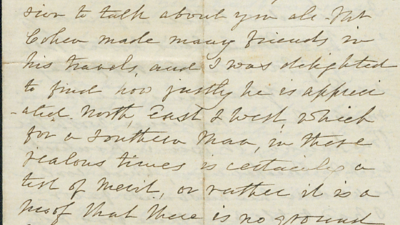 sion to talk about you all. Mr
Cohen made many friends in
his travels, and I was delighted
to find how justly he is appreci
-ated, North, East & West, which
for a Southern Man, in these
jealous times is certainly a
test of merit, or rather it is a
proof that there is no ground